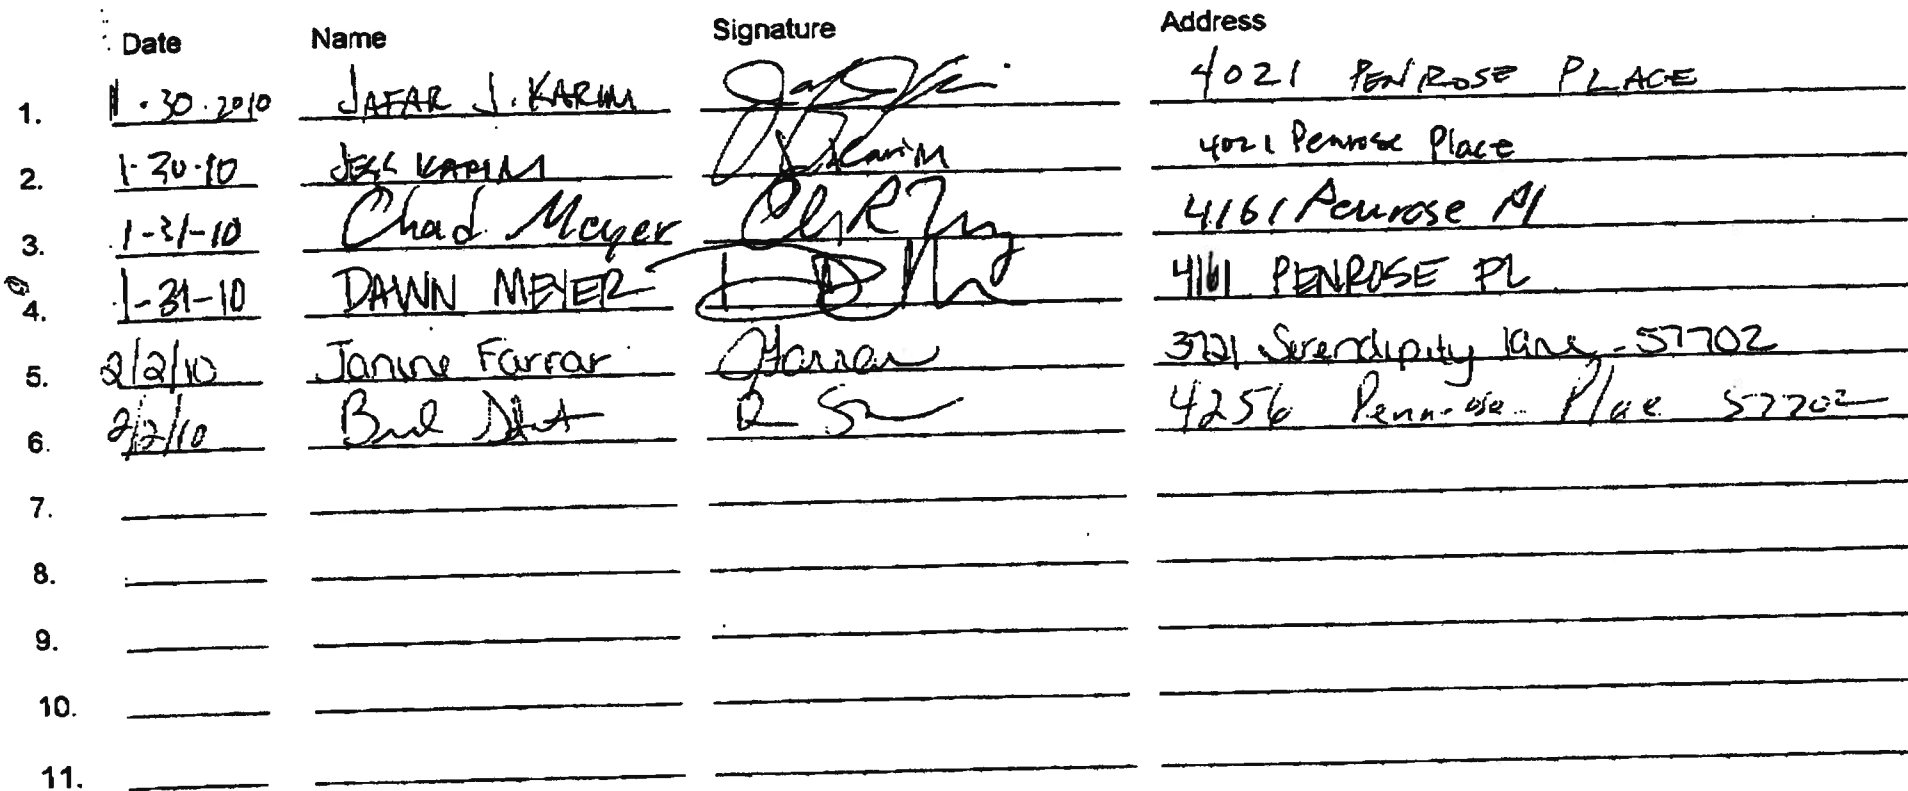 Date Name Signature Address
1. 1.30.2010 JAFAR J. KARIM 4021 PENROSE PLACE
2. 1-30-10 JESS KARIM J Karim 4021 Penrose Place
3. 1-31-10 Chad Meyer 4161 Penrose Pl
4. 1-31-10 DAWN MEYER 4161 PENROSE PL
5. 2/2/10 Janine Farrar JFarrar 3721 Serendipity lane - 57702
6. 2/2/10 4256 Pennrose Place 57702
7.
8.
9.
10.
11.